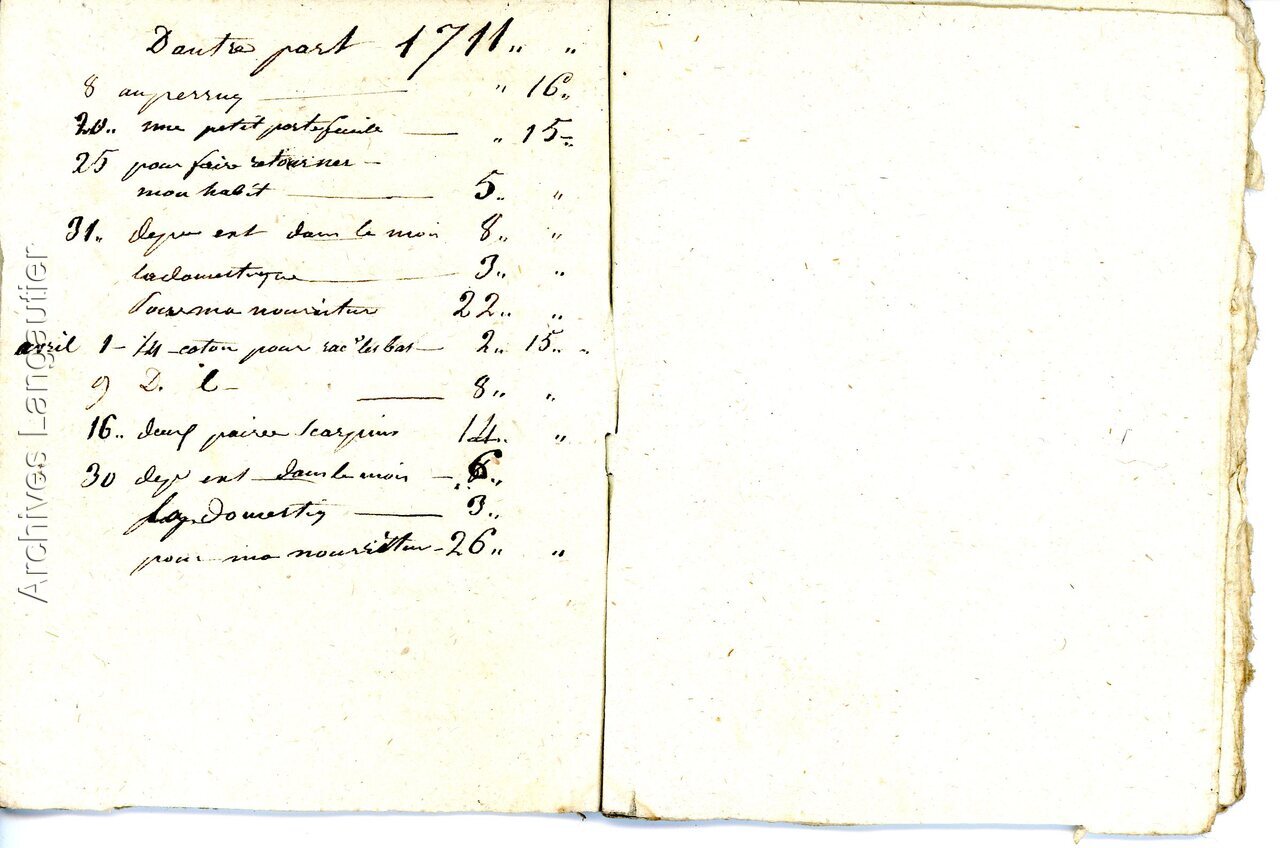 Dautre part 1711 „ „
8 au perruq — „ 16 „
20 „ une petit portefeuile — „ 15 „
25 pour faire retourner –
mon habit — 5 „ „
31 „ depe ent dans le mois 8 „ „
la domestique — 3 „ „
Pour ma nouritur 22 „ „
avril 1 – 1/4 coton pour rac les bas — 2 „ 15 „ „
9 D. L – — 8 „ „
16 „ deux paires Escarpins 14 „ „
30 depe ent dans le mois – 6 „
la domestiq — 3 „
pour ma nourritur – 26 „ „
Archives Langautier